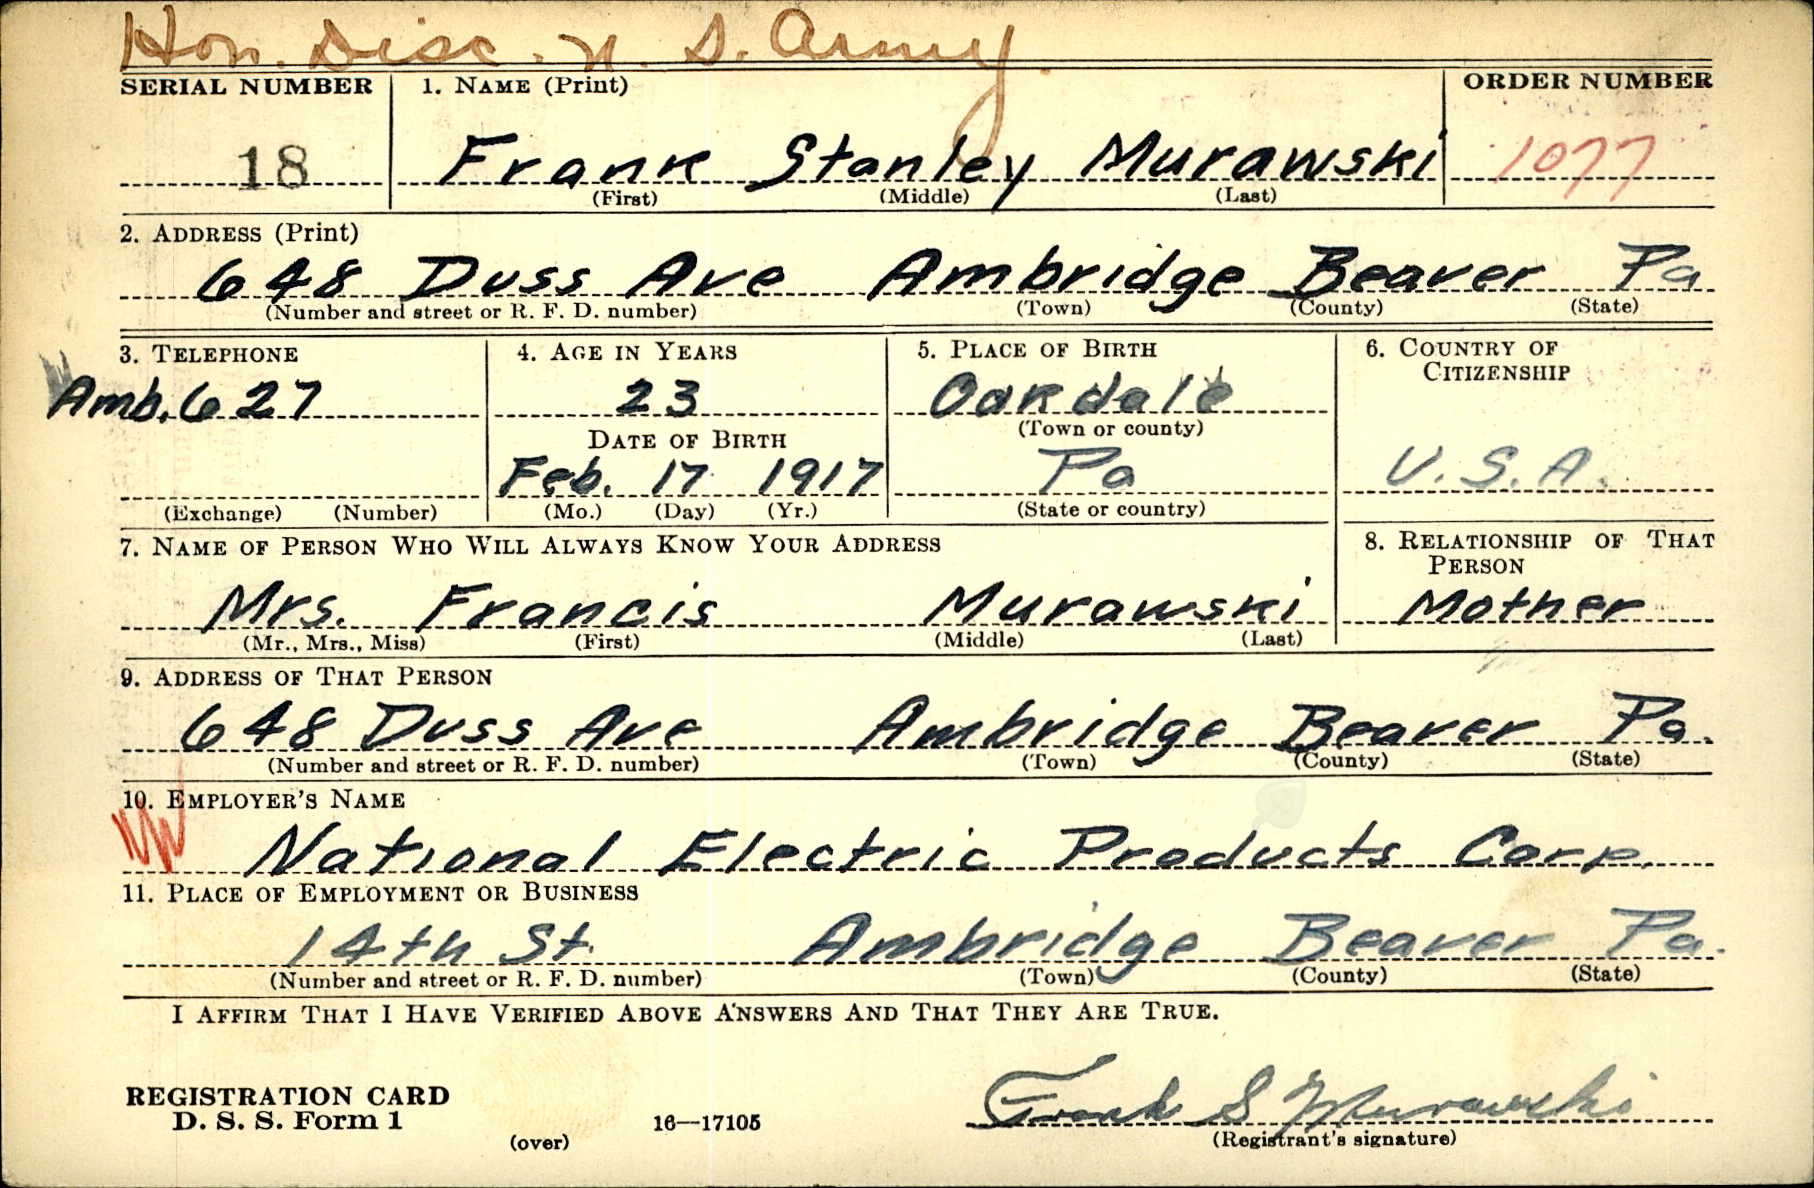 Hon. Disc. U. S. Army.
SERIAL NUMBER 1. NAME (Print) ORDER NUMBER
18 Frank Stanley Murawski 1077
(First) (Middle) (Last)
2. ADDRESS (Print)
648 Duss Ave Ambridge Beaver Pa
(Number and street or R. F. D. number) (Town) (County) (State)
3. TELEPHONE 4. AGE IN YEARS 5. PLACE OF BIRTH 6. COUNTRY OF
CITIZENSHIP
Amb. 627 23 Oakdale
(Town or county)
DATE OF BIRTH
Feb. 17 1917 Pa U.S.A.
(Exchange) (Number) (Mo.) (Day) (Yr.) (State or country)
7. NAME OF PERSON WHO WILL ALWAYS KNOW YOUR ADDRESS 8. RELATIONSHIP OF THAT
PERSON
Mrs. Francis Murawski Mother
(Mr., Mrs., Miss) (First) (Middle) (Last)
9. ADDRESS OF THAT PERSON
648 Duss Ave Ambridge Beaver Pa.
(Number and street or R. F. D. number) (Town) (County) (State)
10. EMPLOYER'S NAME
National Electric Products Corp.
11. PLACE OF EMPLOYMENT OR BUSINESS
14th St. Ambridge Beaver Pa.
(Number and street or R. F. D. number) (Town) (County) (State)
I AFFIRM THAT I HAVE VERIFIED ABOVE ANSWERS AND THAT THEY ARE TRUE.
REGISTRATION CARD
D. S. S. Form 1 16—17105 Frank S Murawski
(over) (Registrant's signature)